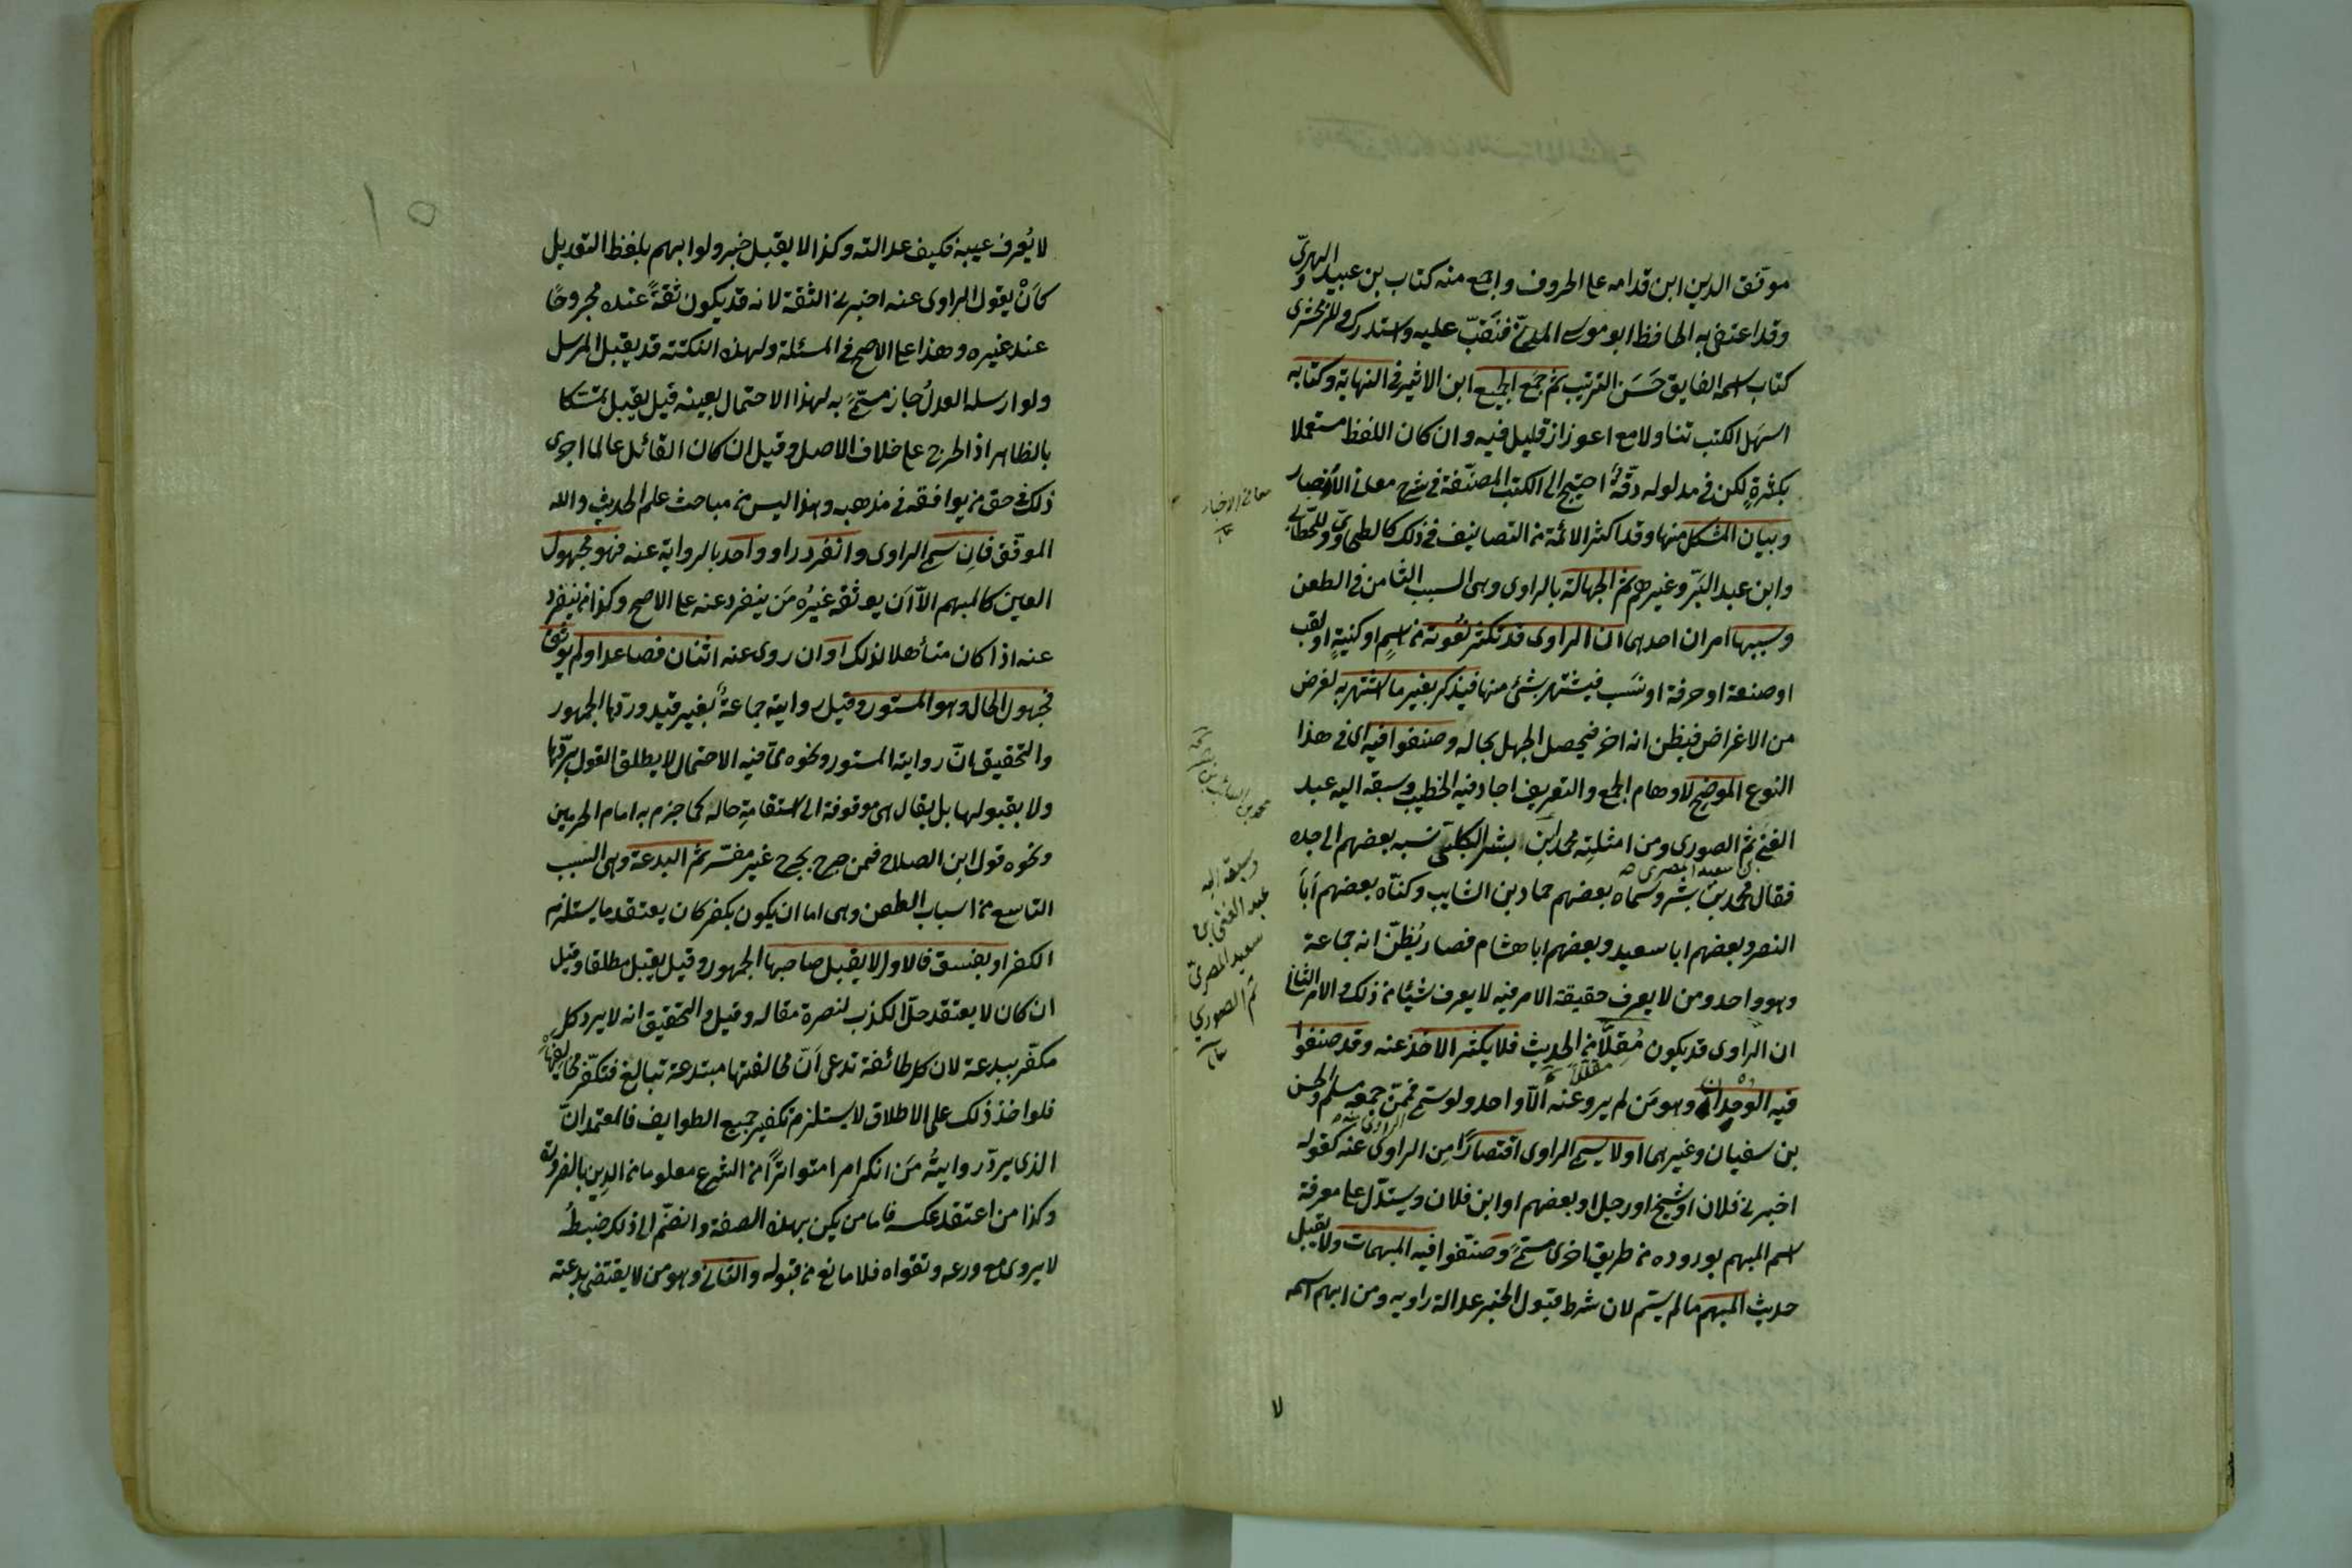 موفق الدين ابن قدامه على الحروف واجمع منه كتاب بن عبيد الهروىّ
وقد اعتنى به الحافظ ابو موسى المدينى فنقّب عليه واستدرك وللزمخشرى
كتاب اسمه الفايق حَسَن الترتيب ثم جمَع الجميع ابن الاثير فى النهاية وكتابه
اسهَل الكتب تناولا مع اعوزاز قليل فيه وان كان اللفظ مستعملا
بكثرةٍ لكن فى مدلوله دقّةٌ احتيج الى الكتب المصنّفة فى شرح معانى الاخبار
وبيان المشكل منها وقد اكثر الائمّة من التصانيف فى ذلك كالطحاوىّ وللخطّابى
وابن عبد البَرّ وغيرهم ثم الجهالة بالراوى وهى السبب الثامن فى الطعن
وسببها امران احدهما ان الراوى قد تكثر نعُوته من اسمٍ او كنيةٍ او لقب
او صنعة او حرفة او نسَب فيشتهر بشئ منها فيذكر بغير ما اشتهر به لغرض
من الاغراض فيظن انه اخر فيحصل الجهل بحاله وصنفوا فيه اى فى هذا
النوع الموضح لاوهام الجمع والتفريق اجاد فيه الخطيب وسبقه اليه عبد
الغنى ثم الصورى ومن امثلته محمد ابن بشر الكلبىّ نسبه بعضهم الى جده
بن سعيد المصرى صه
فقال محمد بن بشر وسماه بعضهم حماد بن السايب وكنّاه بعضهم اَباَ
النصر وبعضهم ابا سعيد وبعضهم ابا هشام فصار يُظنّ انه جماعة
وهو واحد ومن لا يعرف حقيقة الامر فيه لا يعرف شيئا من ذلك والامر الثانى
ان الراوى قد يكون مُقِلّاً من الحديث فلا يكثر الاخذ عنه وقد صنفوا
مقللا
فيه الوحدان وهو مَن لم يرو عنه الّا واحد ولو سمى فممّن جمعه مسلم والحسن
بن سفيان وغيرهما او لا يسمى الراوى اختصارًا مِن الراوى عنه كقوله
اخبرنى فلان او شيخ او رجل او بعضهم او ابن فلان ويستدلّ على معرفة
اسم المبهم بوروده من طريق اخرى مسمّى وصنّفوا فيه المبهمات ولا يقبل
حديث المبهم ما لم يسم لان شرط قبول الخبر عدالة راويه ومن ابهم اسمه
معانى الاخبار
محمد بن السائب بن بشر
وسبقه اليه
عبد الغنى بن
سعيد المصرىّ
ثم الصورى
لا
١٥
لا يُعرف عيبه فكيف عدالته وكذا لا يقبل خبره ولو ابهم بلفظ التعديل
كاَنْ يقول الراوى عنه اخبرنى الثقة لانه قد يكون ثقةً عنده مجروحًا
عند غيره وهذا على الاصح فى المسئلة ولهذه النكتته قد يقبل المرسل
ولو ارسله العدلُ جازمًا به لهذا الاحتمال بعينه قيل يقبل تمتسكا
بالظاهر اذ الجرح على خلاف الاصل وقيل ان كان القائل عالما اجرى
ذلك فى حق من يوافقه فى مذهبه وهذا ليس من مباحث علم الحديث والله
الموفّق فاِن سمى الراوى وانفرد راو واحد بالرواية عنه فهو مجهول
العين كالمبهم الاّ اَن يوثقه غيرُه مَن ينفرد عنه على الاصح وكذا من ينفرد
عنه اذا كان متأهلا لذلك او ان روى عنه اثنان فصاعدا ولم يوثق
فمجهول الحال وهو المستور وقيل روايته جماعةٌ بغير قيد وردّها الجمهور
والتحقيق انّ رواية المستور ونحوه ممّا فيه الاحتمال لا يطلق القول بردّها
ولا بقبولها بل يقال هى موقوفة الى استقامةِ حاله كما جزم به امام الحرمين
ونحوه قول ابن الصلاح فيمن جرح بجرح غير مفسّر ثم البدعة وهى السَبب
التاسع من اسباب الطعن وهى اما ان يكون بكفر كان يعتقد ما يستلزم
الكفر او بفسق فالاول لا يقبل صاحبها الجمهور وقيل يقبل مطلقا وقيل
ان كان لا يعتقد حلّ الكذب لنصرة مقاله وقيل والتحقيق انه لا يرد كل
مكفّر ببدعة لان كل طائفة تدعى اَنّ مخالفتها مبتدعة تبالغ فتكفّر مخالفيها
فلو اخذ ذلك على الاطلاق لا يستلزم تكفير جميع الطوايف فالمعتمد انّ
الذى يردّ روايتُه مَن انكر امرا متواترًا من الشرع معلوما من الدِين بالضرورة
وكذا من اعتقد عكسه فاما من يكن بهذه الصفة وانضمّ الى ذلك ضبطُه
لا يروى مع ورعه وتقواه فلا مانع من قبوله والثانى وهو من لا يقتضى بدعته